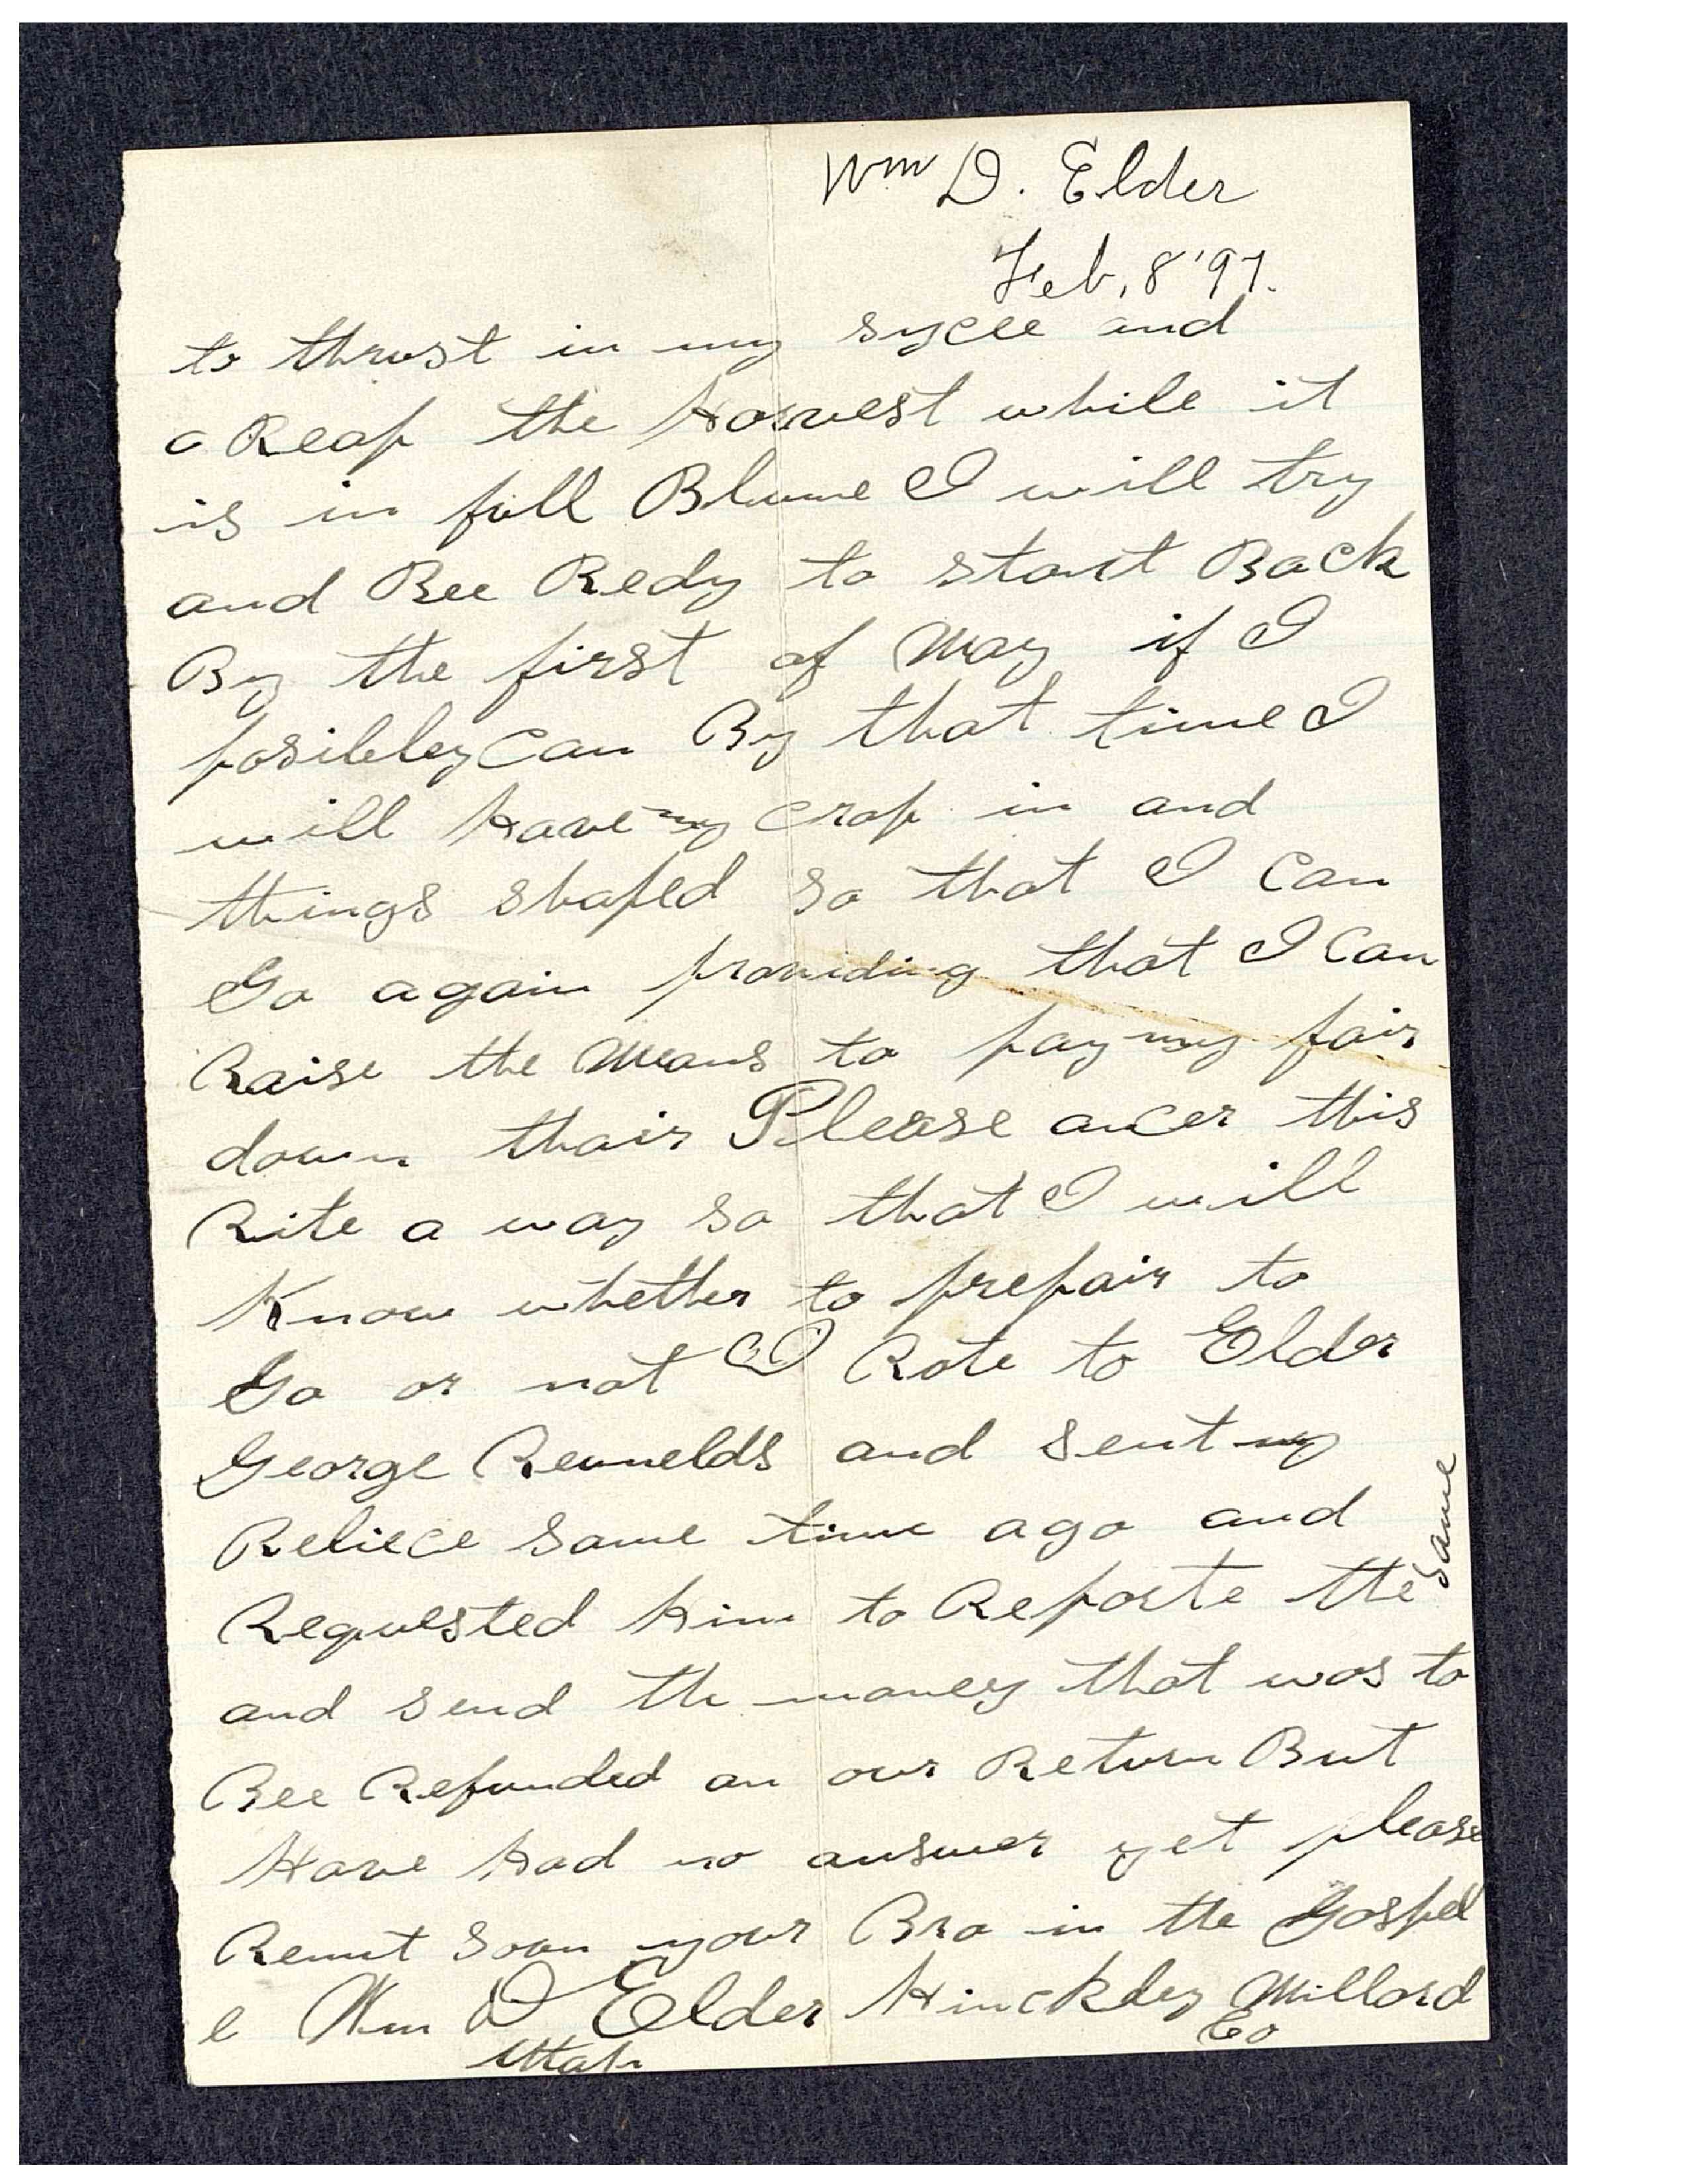 Wm D. Elder
Feb, 8 '97.
to thrust in my sycle and
a Reap the Horvest while it
is in full Blume I will try
and Bee Redy to start Back
By the first of May if I
posibley can By that time I
will Have my crop in and
things shaped so that I can
Go again providing that I can
Raise the Means to pay my fair
down thair Please ancer this
Rite a way so that I will
Know whether to prepair to
Go or not I Rote to Elder
George Reunelds and sent my
Reliece some time ago and
Requested Him to Reporte the same
and send the money that was to
Bee Refunded on our Return But
Have Had no answer yet please
Remit soon your Bro in the Gospel
e Wm D Elder Hinckley Millord
Co
Utah